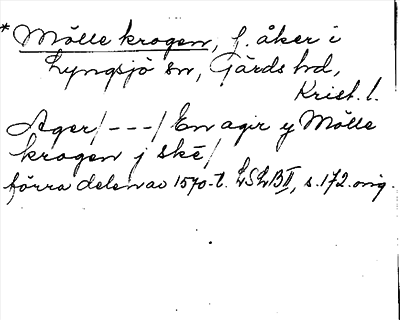 * Mölle krogen, f. åker i
Lyngsjö sn, Gärds hd,
Krist. l.
Ager/---/ En agir y Mölle
krogen j skē/
förra delen av 1570-t. LSLB II, s. 172. orig.